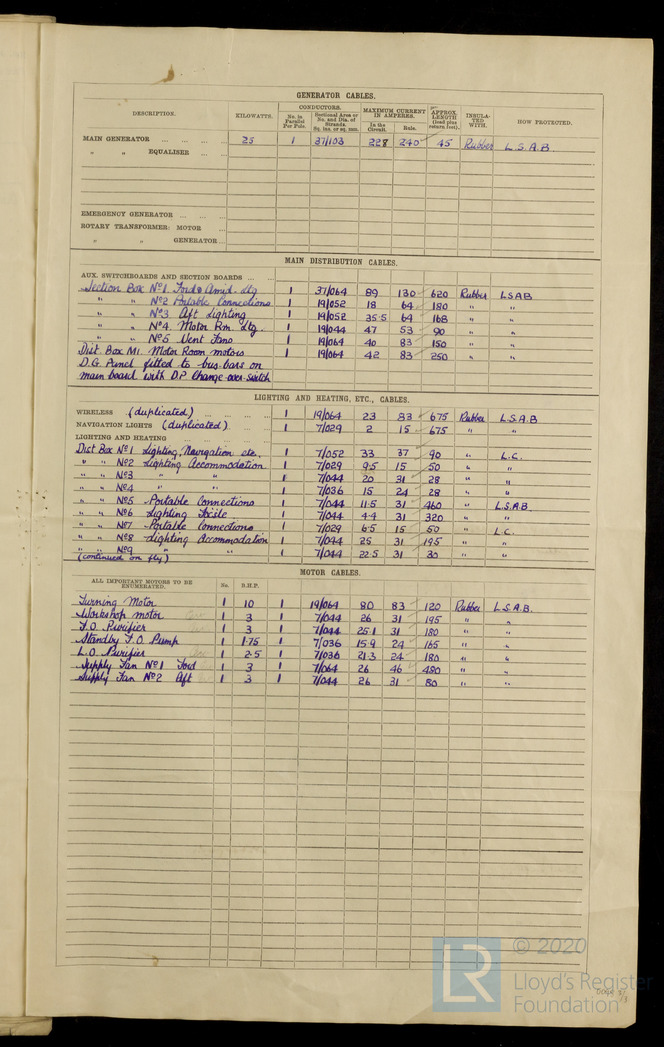 GENERATOR CABLES.
DESCRIPTION. KILOWATTS. CONDUCTORS. No. in Parallel Per Pole. Sectional Area or No. and Dia. of Strands. Sq. ins. or sq. mm. MAXIMUM CURRENT IN AMPERES. In the Circuit. Rule. APPROX. LENGTH (lead plus return feet). INSULATED WITH. HOW PROTECTED.
MAIN GENERATOR 25 1 37/103 228 240 45 Rubber L.S.A.B.
" " EQUALISER
EMERGENCY GENERATOR
ROTARY TRANSFORMER: MOTOR
" " GENERATOR
MAIN DISTRIBUTION CABLES.
AUX. SWITCHBOARDS AND SECTION BOARDS
Section Box No1 Ford & Amid. Ltg 1 37/064 89 130 620 Rubber LSAB
" " No2 Portable Connections 1 19/052 18 64 180 " "
" " No3 Aft Lighting 1 19/052 35.5 64 168 " "
" " No4 Motor Rm. Ltg. 1 19/044 47 53 90 " "
" " No5 Vent Fans 1 19/064 40 83 150 " "
Dist. Box M1. Motor Room motors 1 19/064 42 83 250 " "
D.G. Panel fitted to bus bars on
main board with D.P. Change over switch
LIGHTING AND HEATING, ETC., CABLES.
WIRELESS (duplicated) 1 19/064 23 83 675 Rubber L.S.A.B
NAVIGATION LIGHTS (duplicated) 1 7/029 2 15 675 " "
LIGHTING AND HEATING
Dist Box No1 Lighting, Navigation etc., 1 7/052 33 37 90 " L.C.
" " No2 Lighting Accommodation 1 7/029 9.5 15 50 " "
" " No3 " " 1 7/044 20 31 28 " "
" " No4 " " 1 7/036 15 24 28 " "
" " No5 Portable Connections 1 7/044 11.5 31 460 " L.S.A.B.
" " No6 Lighting Focsle 1 7/044 4.4 31 320 " "
" " No7 Portable Connections 1 7/029 6.5 15 50 " L.C.
" " No8 Lighting Accommodation 1 7/044 25 31 195 " "
" " No9 " " 1 7/044 22.5 31 30 " "
(continued on fly)
MOTOR CABLES.
ALL IMPORTANT MOTORS TO BE ENUMERATED. No. B.H.P.
Turning Motor 1 10 1 19/064 80 83 120 Rubber L.S.A.B.
Workshop motor 1 3 1 7/044 26 31 195 " "
F.O. Purifier 1 3 1 7/044 25.1 31 180 " "
Standby F.O. Pump 1 1.75 1 7/036 15.9 24 165 " "
L.O. Purifier 1 2.5 1 7/036 21.3 24 180 " "
Supply Fan No1 Ford 1 3 1 7/064 26 46 480 " "
Supply Fan No2 Aft 1 3 1 7/044 26 31 80 " "
LR
© 2020
Lloyd's Register
Foundation